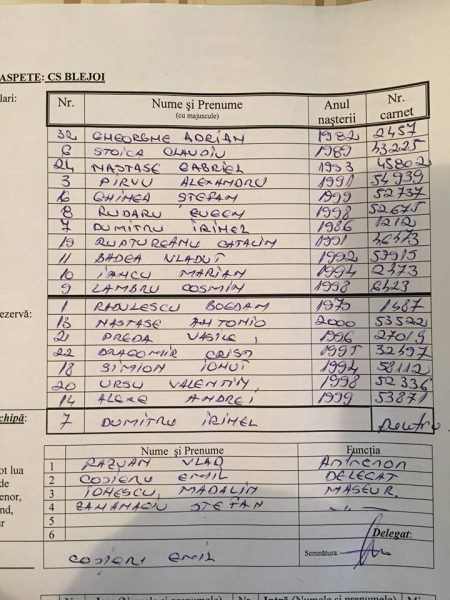 ASPETE: CS BLEJOI
lari:
Nr. Nume şi Prenume (cu majuscule) Anul naşterii Nr. carnet
32 GHEORGHE ADRIAN 1982 2457
6 STOICA CLAUDIU 1989 43225
24 NASTASE GABRIEL 1993 45802
3 PIRVU ALEXANDRU 1991 54939
16 GHINEA STEFAN 1999 52737
8 RUDARU EUGEN 1998 52675
7 DUMITRU IRINEL 1986 1212
19 RUPTUREANU CATALIN 1991 46473
11 BADEA VLADUT 1992 57915
10 IANCU MARIAN 1994 2473
9 LAMBRU COSMIN 1998 6423
ezervă:
1 RADULESCU BOGDAN 1975 1487
13 NASTASE ANTONIO 2000 53522
21 PREDA VASILE 1996 27019
22 DRAGOMIR CRIST 1995 32497
18 SIMION IONUT 1994 58112
20 URSU VALENTIN 1998 52336
14 ALEXE ANDREI 1999 53871
chipă: 7 DUMITRU IRINEL
Nume şi Prenume Funcţia
ot lua
de
enor,
nd,
ur
1 RAZVAN VLAD Antrenor
2 COJIERU EMIL DELEGAT
3 IONESCU MADALIN MASEUR
4 STEFAN -"-
5
6
Delegat:
COJIERU EMIL Semnătura